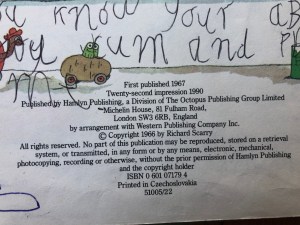 u know your a
by rum and p
First published 1967
Twenty-second impression 1990
Published by Hamlyn Publishing, a Division of The Octopus Publishing Group Limited
Michelin House, 81 Fulham Road,
London SW3 6RB, England
by arrangement with Western Publishing Company Inc.
© Copyright 1966 by Richard Scarry
All rights reserved. No part of this publication may be reproduced, stored on a retrieval
system, or transmitted, in any form or by any means, electronic, mechanical,
photocopying, recording or otherwise, without the prior permission of Hamlyn Publishing
and the copyright holder
ISBN 0 601 07179 4
Printed in Czechoslovakia
51005/22